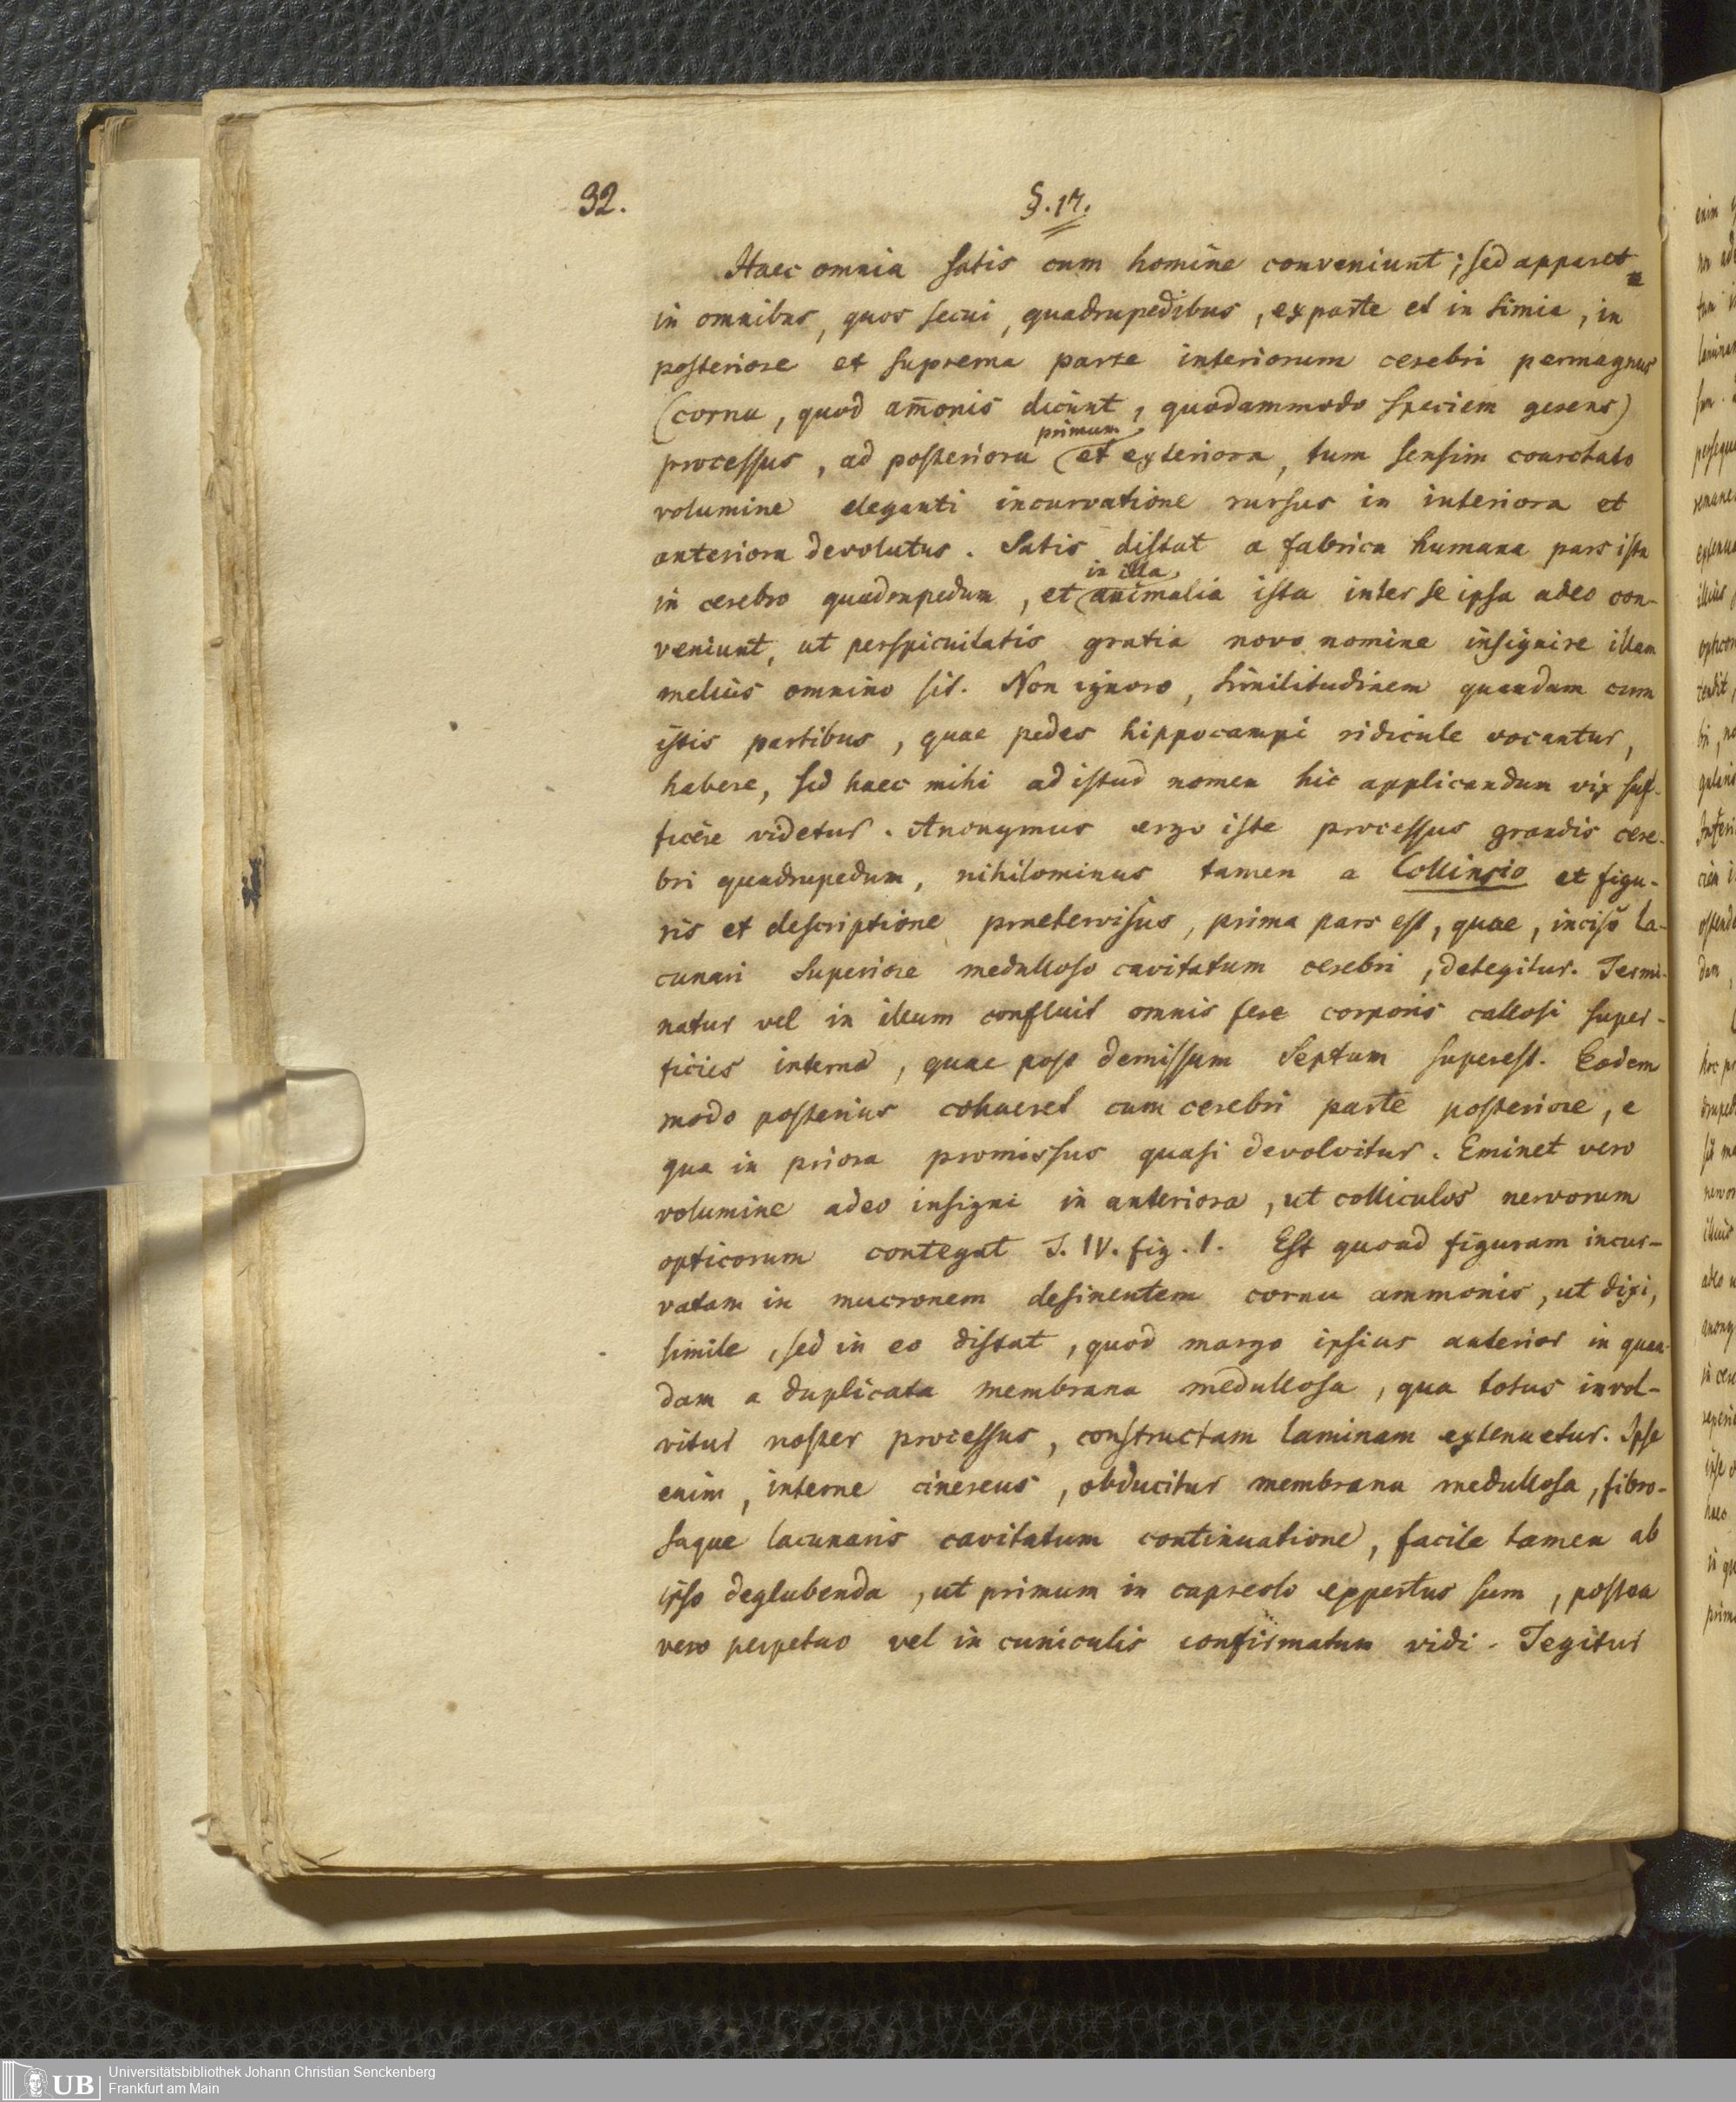 32.
§. 17.
Haec omnia satis cum homine conveniunt; sed apparet
in omnibus, quos secui, quadrupedibus, ex parte et in simia, in
posteriore et suprema parte interiorum cerebri permagnus
(cornu, quod am̄onis dicunt, quodammodo speciem gerens)
primum
processus, ad posteriora et exteriora, tum sensim coarctato
volumine eleganti incurvatione rursus in interiora et
anteriora devolutus. Satis distat a fabrica humana pars ista
in illa
in cerebro quadrupedum, et animalia ista inter se ipsa adeo con-
veniunt, ut perspicuitatis gratia novo nomine insignire illam
melius omnino sit. Non ignoro, similitudinem quandam cum
istis partibus, quae pedes hippocampi ridicule vocantur,
habere, sed haec mihi ad istud nomen hic applicandum vix suf-
ficere videtur. Anonymus ergo iste processus grandis cere-
bri quadrupedum, nihilominus tamen a Collinsio et figu-
ris et descriptione praetervisus, prima pars est, quae, inciso la-
cunari superiore medulloso cavitatum cerebri, detegitur. Termi-
natur vel in illum confluit omnis fere corporis callosi super-
ficies interna, quae post demissum septum superest. Eodem
modo posterius cohaeret cum cerebri parte posteriore, e
qua in priora promissus quasi devolvitur. Eminet vero
volumine adeo insigni in anteriora, ut colliculos nervorum
opticorum contegat T. IV. fig. 1. Est quoad figuram incur-
vatam in mucronem desinentem cornu ammonis, ut dixi,
simile, sed in eo distat, quod margo ipsius anterior in quan-
dam a duplicata membrana medullosa, qua totus invol-
vitur noster processus, constructam laminam extenuetur. Ipse
enim, interne cinereus, obducitur membrana medullosa, fibro-
saque lacunaris cavitatum continuatione, facile tamen ab
ipso deglubenda, ut primum in capreolo expertus sum, postea
vero perpetuo vel in cuniculis confirmatum vidi. Tegitur
UB
Universitätsbibliothek Johann Christian Senckenberg
Frankfurt am Main